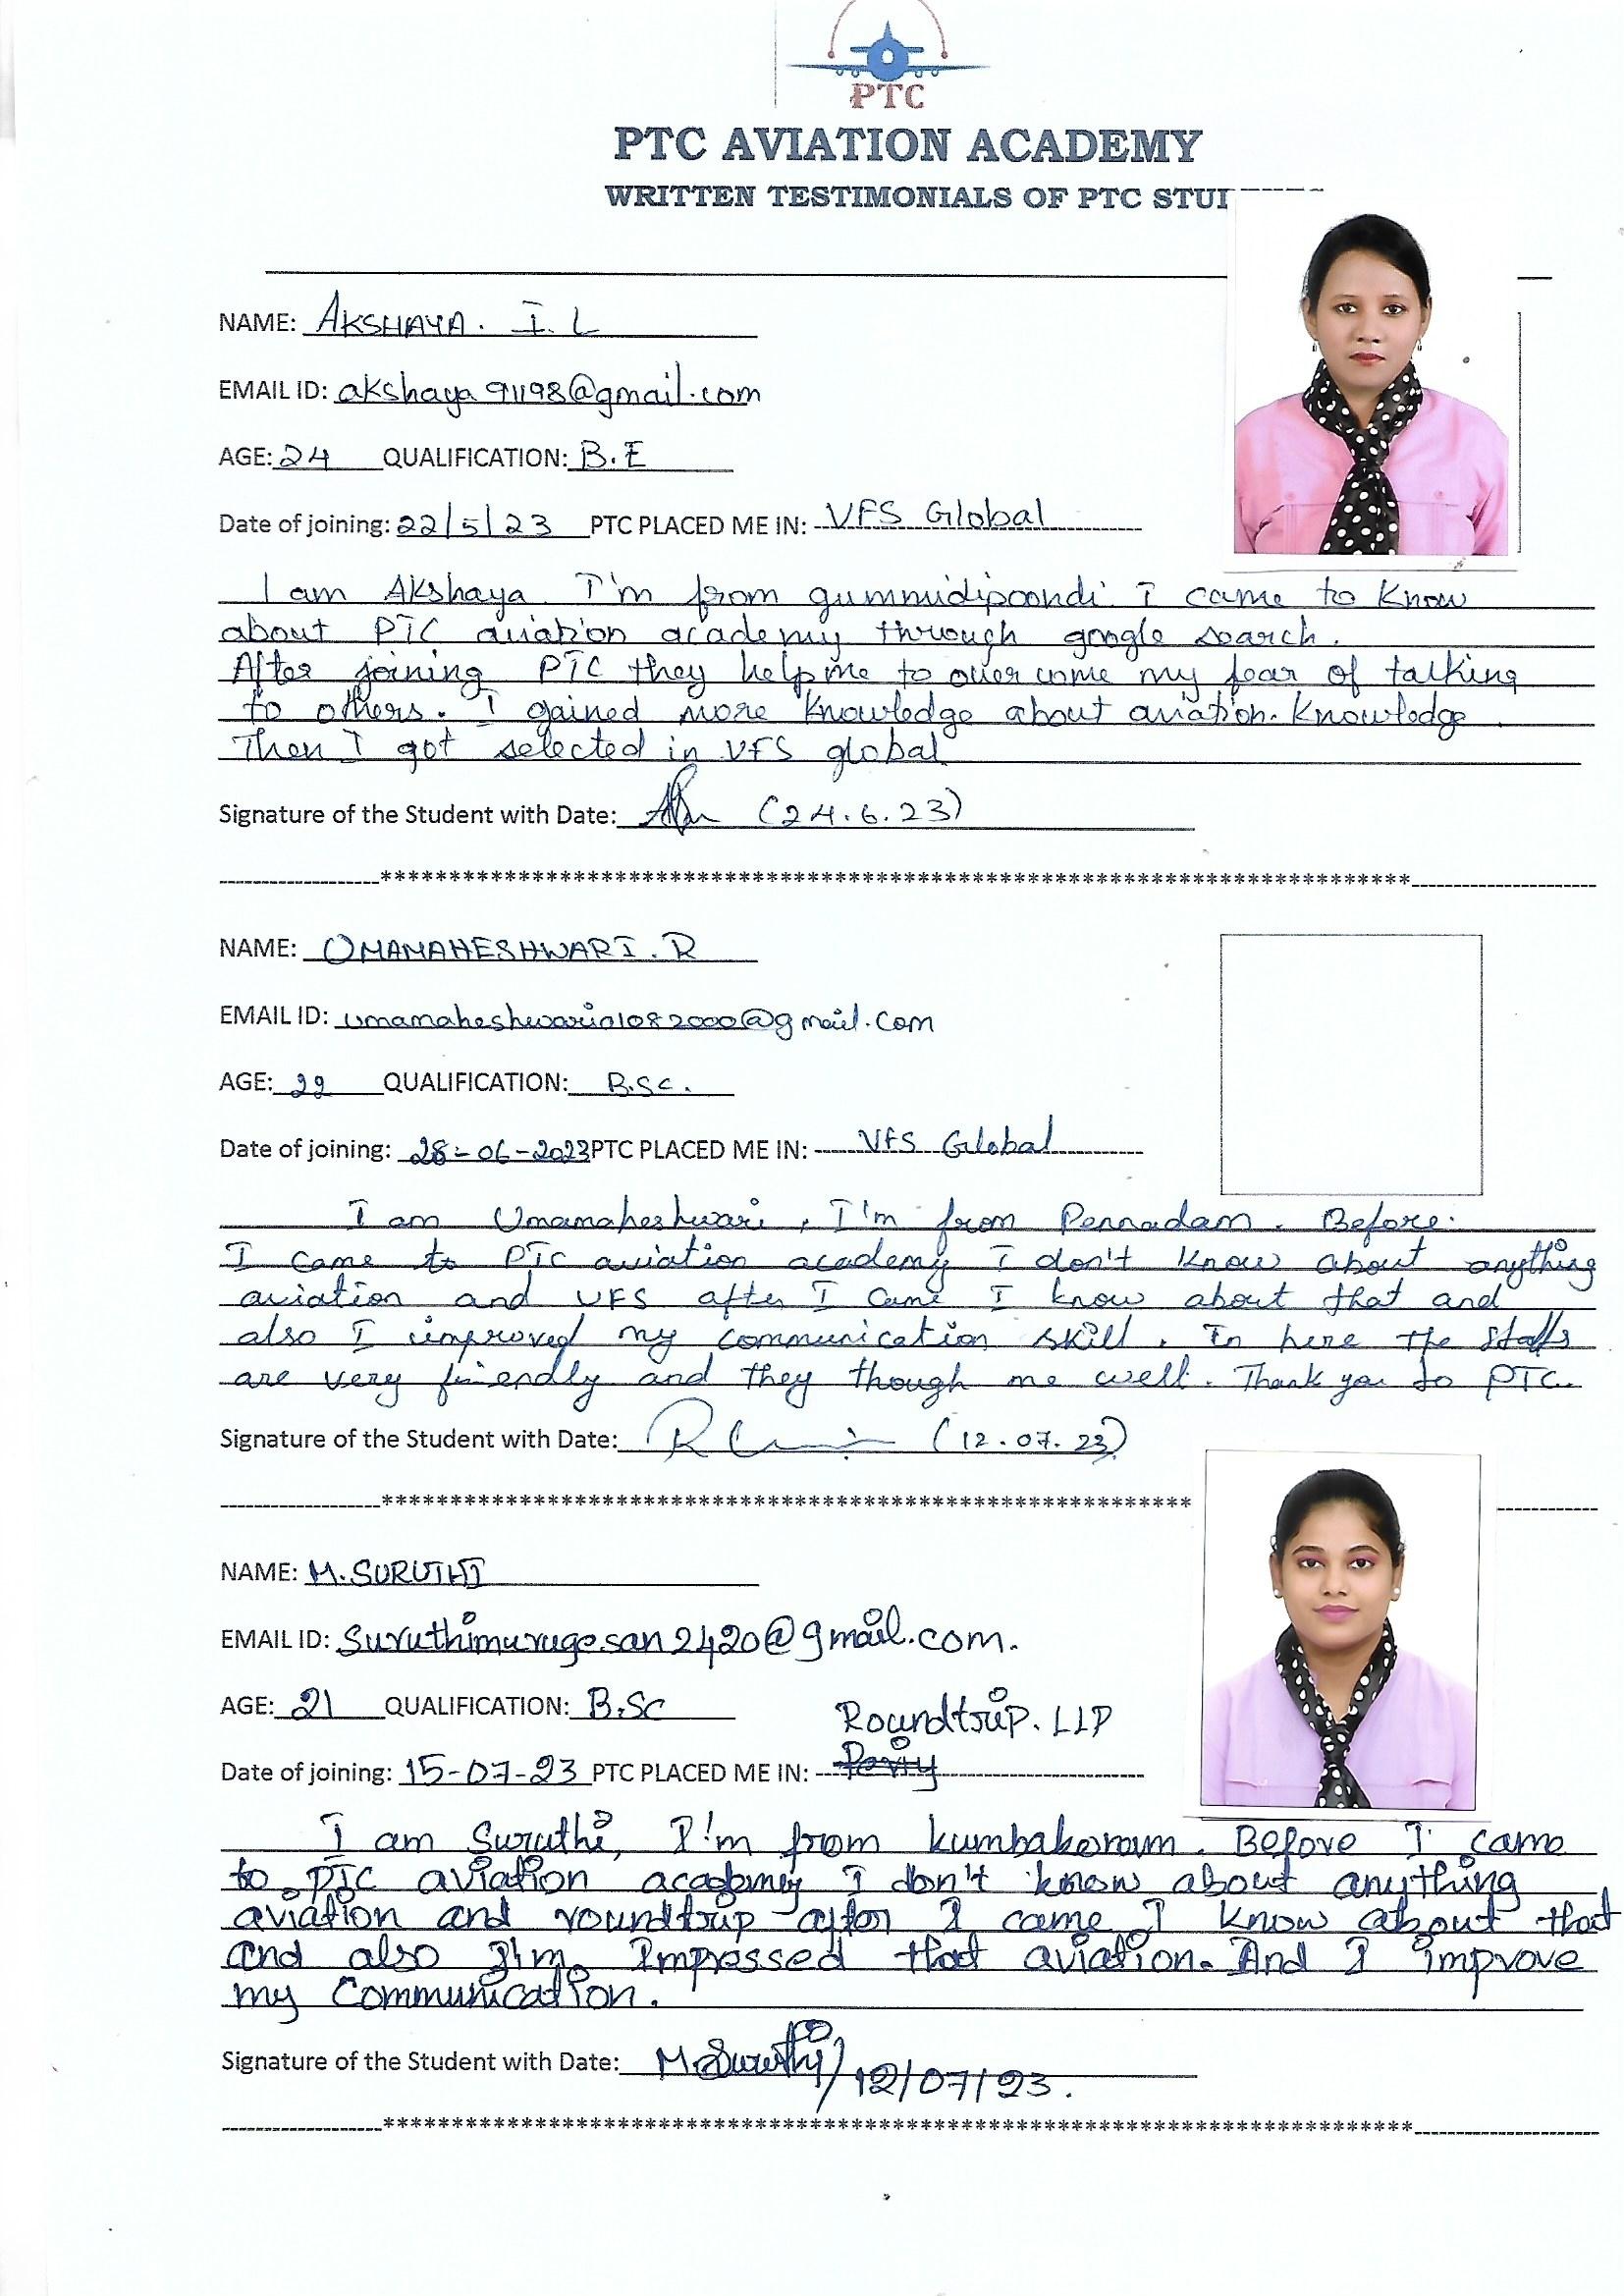 PTC
PTC AVIATION ACADEMY
WRITTEN TESTIMONIALS OF PTC STU
NAME: AKSHAYA. I. L
EMAIL ID: akshaya91198@gmail.com
AGE: 24 QUALIFICATION: B.E
Date of joining: 22/5/23 PTC PLACED ME IN: VFS Global
I am Akshaya. I'm from gummidipoondi. I came to know
about PTC aviation academy through google search.
After joining PTC they help me to over come my fear of talking
to others. I gained more knowledge about aviation. knowledge.
Then I got selected in VFS global
Signature of the Student with Date: (24.6.23)
NAME: UMAMAHESHWARI. R
EMAIL ID: @gmail.com
AGE: 22 QUALIFICATION: B.Sc.
Date of joining: 28-06-2023 PTC PLACED ME IN: VFS Global
I am Umamaheshwari, I'm from Pennadam. Before.
I came to PTC aviation academy I don't know about anything
aviation and VFS after I came I know about that and
also I improved my communication skill. In here the staffs
are very friendly and they though me well. Thank you to PTC.
Signature of the Student with Date: (12.07.23)
NAME: M.SURUTHI
EMAIL ID: Suruthimurugesan2420@gmail.com.
AGE: 21 QUALIFICATION: B.Sc
Roundtrip. LLP
Date of joining: 15-07-23 PTC PLACED ME IN:
I am Suruthi, I'm from kumbakonam. Before I came
to PTC aviation academy I don't know about anything
aviation and roundtrip after I came I know about that
and also I'm Impressed that aviation. And I improve
my Communication.
Signature of the Student with Date: M.Suruthi/12/07/23.